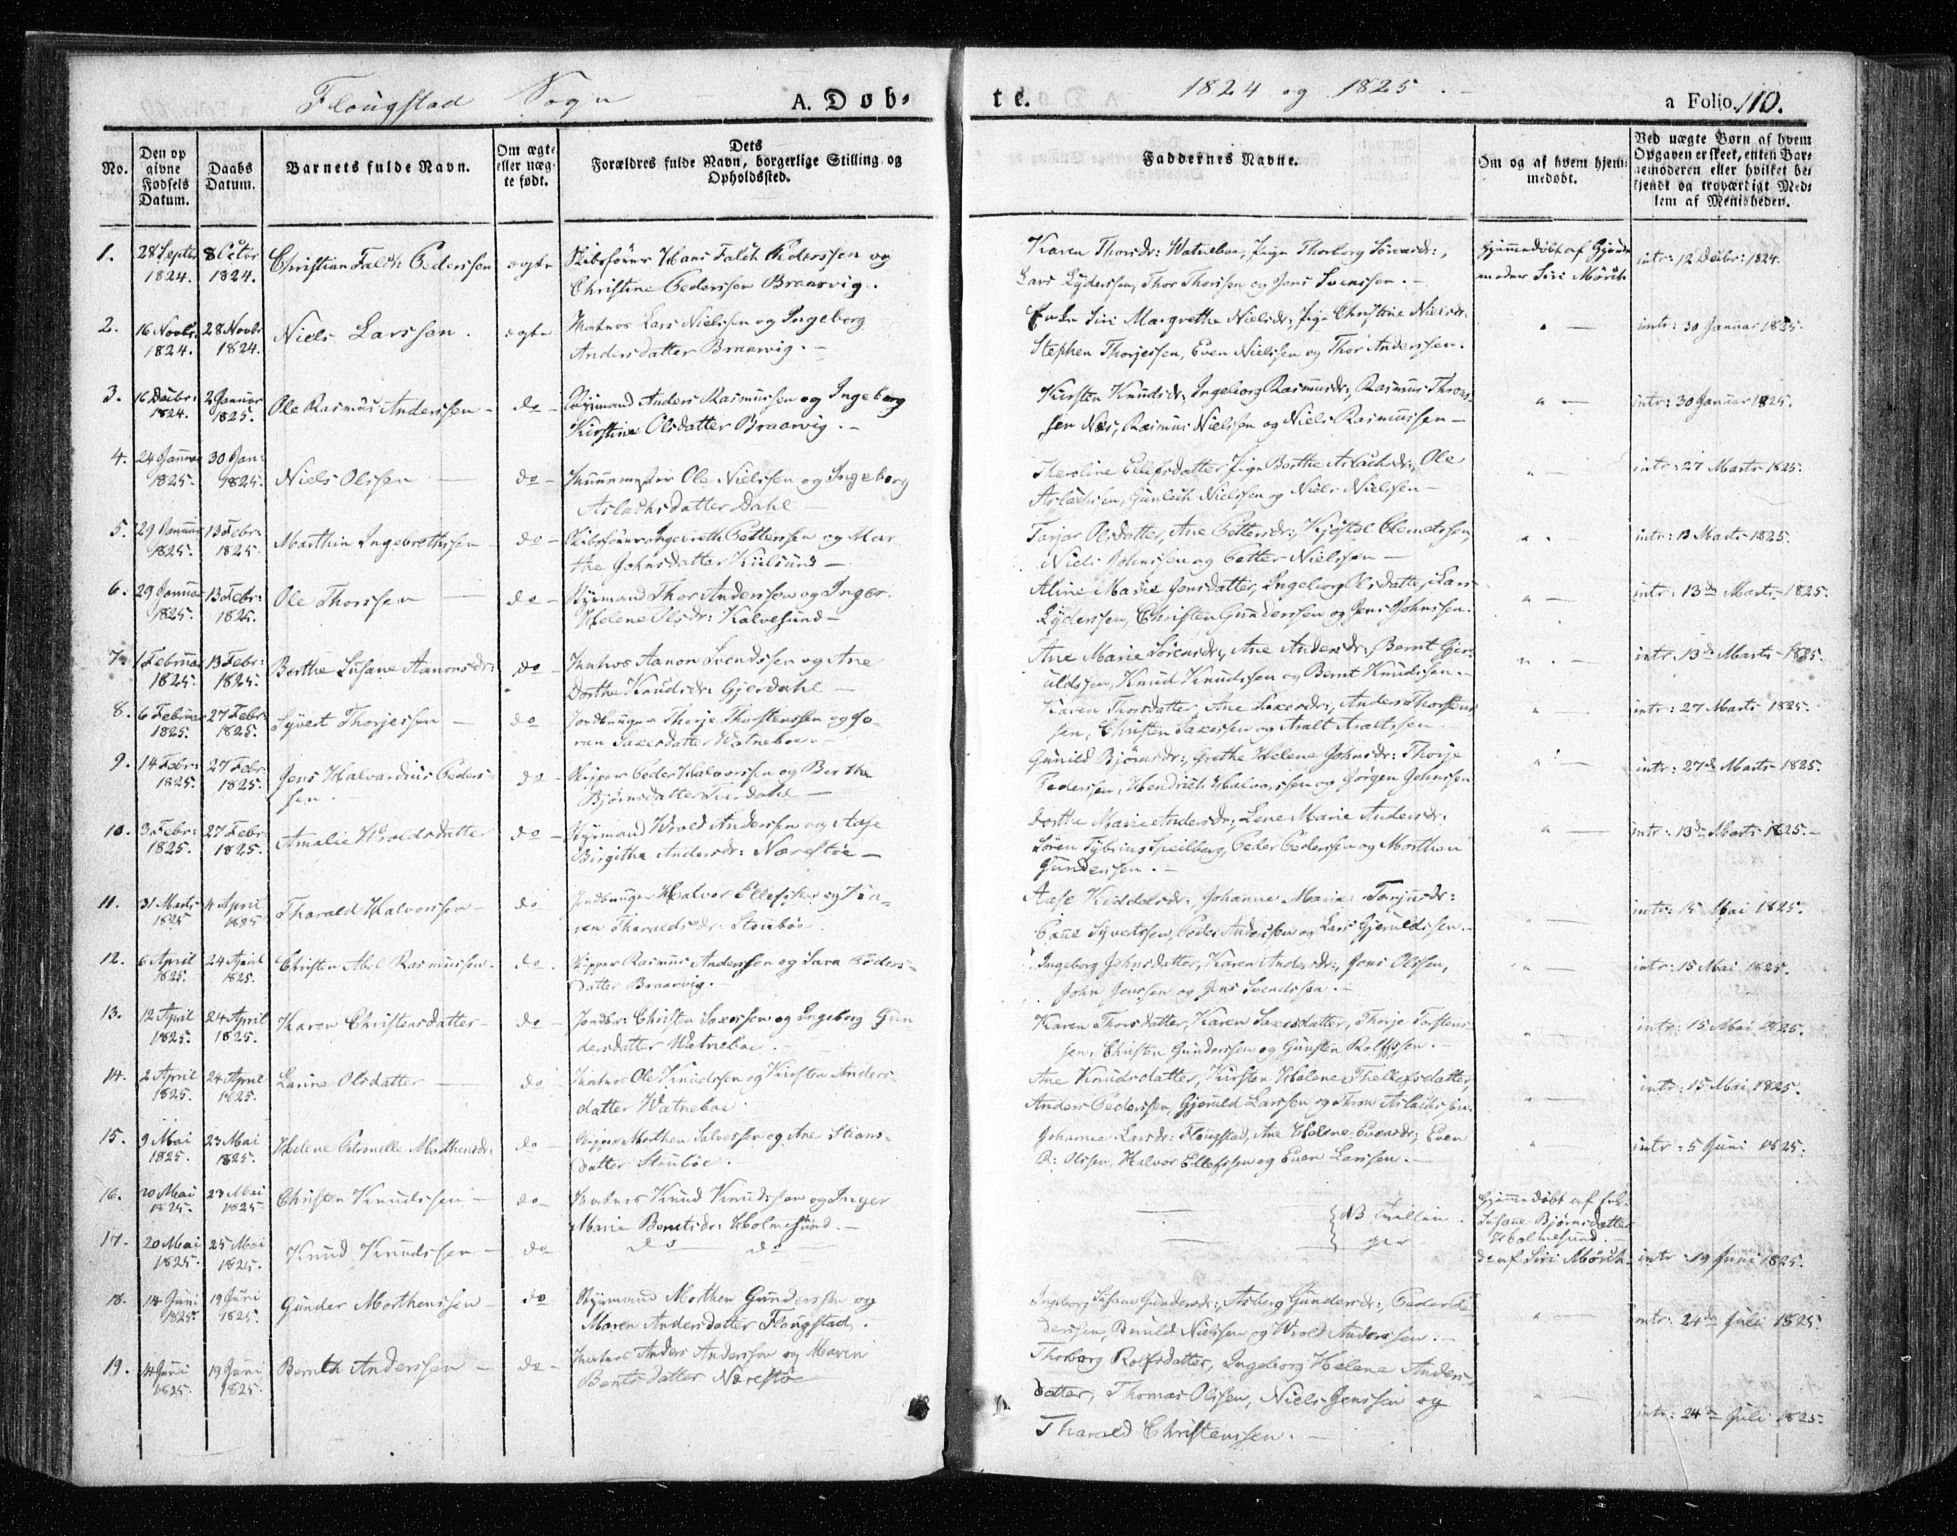 Flougstad Sogn A. Døb-
te. 1824 og 1825. a Folio 110.
No. Den op givne Fødsels Datum. Daabs Datum. Barnets fulde Navn. Om ægte eller uægte født. Dets Forældres fulde Navn, borgerlige Stilling og Opholdssted. Faddernes Navne. Om og af hvem hjemmedøbt. Ved uægte Børn af hvem Opgaven er skeet, enten Barnemoderen eller hvilket bekjendt og troværdigt Medlem af Menigheden.
1. 28 Septbr 1824. 8 Octor 1824. Christian Falch Pedersen ægte Skibsfører Hans Falch Pederssen og
Christine Pederssen Braarvig.
Karen Thorsdr: Watneboe, Pige Thorborg Sørensdr:,
Lars Lyderssen, Thor Thorssen og Jens Svenssen.
Hjemmedøbt af Gjordemoder Siri Mørch
intr: 12 Decbr: 1824.
2. 16 Novbr. 1824. 28 Novbr 1824. Niels Larssen. ægte Matros Lars Nielssen og Ingeborg
Andersdatter Braarvig.
Enke Siri Margrethe Nielsdr: Pige Christine Nielsdr:
Stephen Thorjessen, Even Nielssen og Thor Anderssen.
intr: 30 Januar 1825.
3. 16 Decbr: 1824. 2 Januar 1825. Ole Rasmus Anderssen do Styrmand Anders Rasmussen og Ingeborg
Kirstine Olsdatter Braarvig.
Kirsten Knudsdr:, Ingeborg Rasmusdr:, Rasmus Thors
sen Næs, Rasmus Nielssen og Niels Rasmussen
intr: 30 Januar 1825.
4. 24 Januar 1825. 30 Jan: 1825. Niels Olssen do Ole Nielssen og Ingeborg
Aslachsdatter Dahl
Ellefsdatter, Pige Berthe Aslachsdr:, Ole
Aslachsen, Gunlech Nielssen og Niels Nielssen
intr: 27 Marts 1825.
5. 29 Januar 1825. 13 Febr: 1825. Marthin Ingebrethssen do Skibsfører Ingebreth Pettersen og Mar
the Johnsdatter Kiilsund
Tarjer Olsdatter, Ane Pettersdr:, Kjøstel Clemetssen,
Niels Johnssen og Petter Nielssen
intr: 13 Marts 1825.
6. 29 Januar 1825. 13 Febr: 1825. Ole Thorssen do Styrmand Thor Anderssen og Inger
Helene Olsdr: Kalvesund
Aline Marie Jonsdatter, Ingeborg Olsdatter, Lars
Lyderssen, Christen Gunderssen og Jens Johnssen.
intr: 13de Marts 1825.
7. 1 Februar 1825. 13 Febr: 1825. Berthe Susane Aanonsdr: do Matros Aanon Svendssen og Ane
Dorthe Knudsdr: Gjerdahl
Ane Marie Sørensdr:, Ane Andersdr:, Bernt Gjer
uldssen, Knud Knudssen og Bernt Knudssen.
intr: 13de Marts 1825.
8. 6 Februar 1825. 27 Febr: 1825. Syvert Thorjessen do Jordbruger Thorje Thorstenssen og Jo-
ran Saxesdatter Watneboe
Karen Thorsdatter, Ane Saxesdr:, Anders Thorsens
sen, Christen Saxessen og Aralt Araltssen
intr: 27 Marts 1825.
9. 14 Febr: 1825. 27 Febr: 1825. Jens Halvardius Peders-
sen. do Skipper Peder Halvorssen og Berthe
Bjørnsdatter
Gunild Bjørnsdr:, Grethe Helene Johnsdr: Thorje
Pederssen, Hendrich Halvorssen og Jørgen Johnssen
intr: 27de Marts 1825.
10. 3 Febr: 1825. 27 Febr: 1825. Amalie Wroldsdatter do Styrmand Wrold Anderssen og Aase
Birgitha Andersdr: Nærestøe
Dorthe Marie Andersdr:, Lene Marie Andersdr:
Søren Tybrius Speilberg, Peder Pederssen og Morthen
Gunderssen.
intr: 13de Marts 1825.
11. 31 Marts 1825 4 April 1825 Tharald Halvorssen do Jordbruger Halvor Ellefssen og
Tharaldsdr: Stoubøe
Aase Kiddelsdr:, Johanne Marie Torjusdr:
Syvertssen, Peder Anderssen og Lars Gjeruldssen.
intr: 15 Mai 1825.
12. 6 April 1825. 24 April 1825. Christen Abel Rasmussen. do. Skipper Rasmus Anderssen og Sara Peders-
datter Braarvig.
Ingeborg Johnsdatter, Karen Andersdr:, Jens Olssen,
John Jenssen og Jens Svendssen.
intr: 15 Mai 1825.
13. 12 April 1825. 24 April 1825. Karen Christensdatter do Jordbr: Christen Saxessen og Ingeborg Gun
dersdatter Watneboe.
Karen Thorsdatter, Karen Saxesdatter, Thorje Torstens
sen, Christen Gunderssen og Gunsten Rolfssen.
intr: 15 Mai 1825.
14. 2 April 1825. 24 April 1825. Larine Olsdatter do Matros Ole Knudssen og Kirsten Anders-
datter Watneboe.
Ane Knudsdatter, Kirsten Helene Thellefsdatter,
Anders Pederssen, Gjeruld Larssen og Thron Aslachssen.
intr: 15 Mai 1825.
15. 9 Mai 1825. 23 Mai 1825. Helene Petronelle Morthensdr: do Skipper Morthen Salvessen og Ane Stians-
datter Stoubøe.
Johanne Larsdr: Flougstad, Ane Helene Evensdr:, Even
R: Olssen, Halvor Ellefssen og Even Larssen.
intr: 5 Juni 1825.
16. 20 Mai 1825. 23 Mai 1825 Christen Knudssen do Matros Knud Knudssen og Inger
Marie Berntsdr: Holmesund.
NB Tvillin
Hjemmedøbt af
Susane Bjørnsdatter
Holmesund.
17. 20 Mai 1825. 25 Mai 1825. Knud Knudssen do do do
ger
do af Siri Mørch. intr: 19 Juni 1825.
18. 14 Juni 1825. 19 Juni 1825. Gunder Morthenssen do Styrmand Morthen Gunderssen og
Maren Andersdatter Flougstad.
Ingeborg Susane Gundersdr:, Asberg Gundersdr:, Peder Pe
derssen, Beruld Nielssen og Wrold Anderssen.
intr: 24de Juli 1825.
19. 14 Juni 1825. 19 Juni 1825. Bernth Anderssen do Matros Anders Anderssen og Maren
Berntsdatter Nærestøe
Thorborg Rolfsdatter, Ingeborg Helene Anders-
datter, Thomas Olssen, Niels Jenssen og
Tharald Christenssen.
intr: 24de Juli 1825.